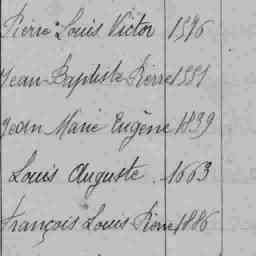 Pierre Louis Victor 1596
Jean Baptiste Pierre 1551
Jean Marie Eugène 1839
Louis Auguste. 1663
François Louis Pierre 1886